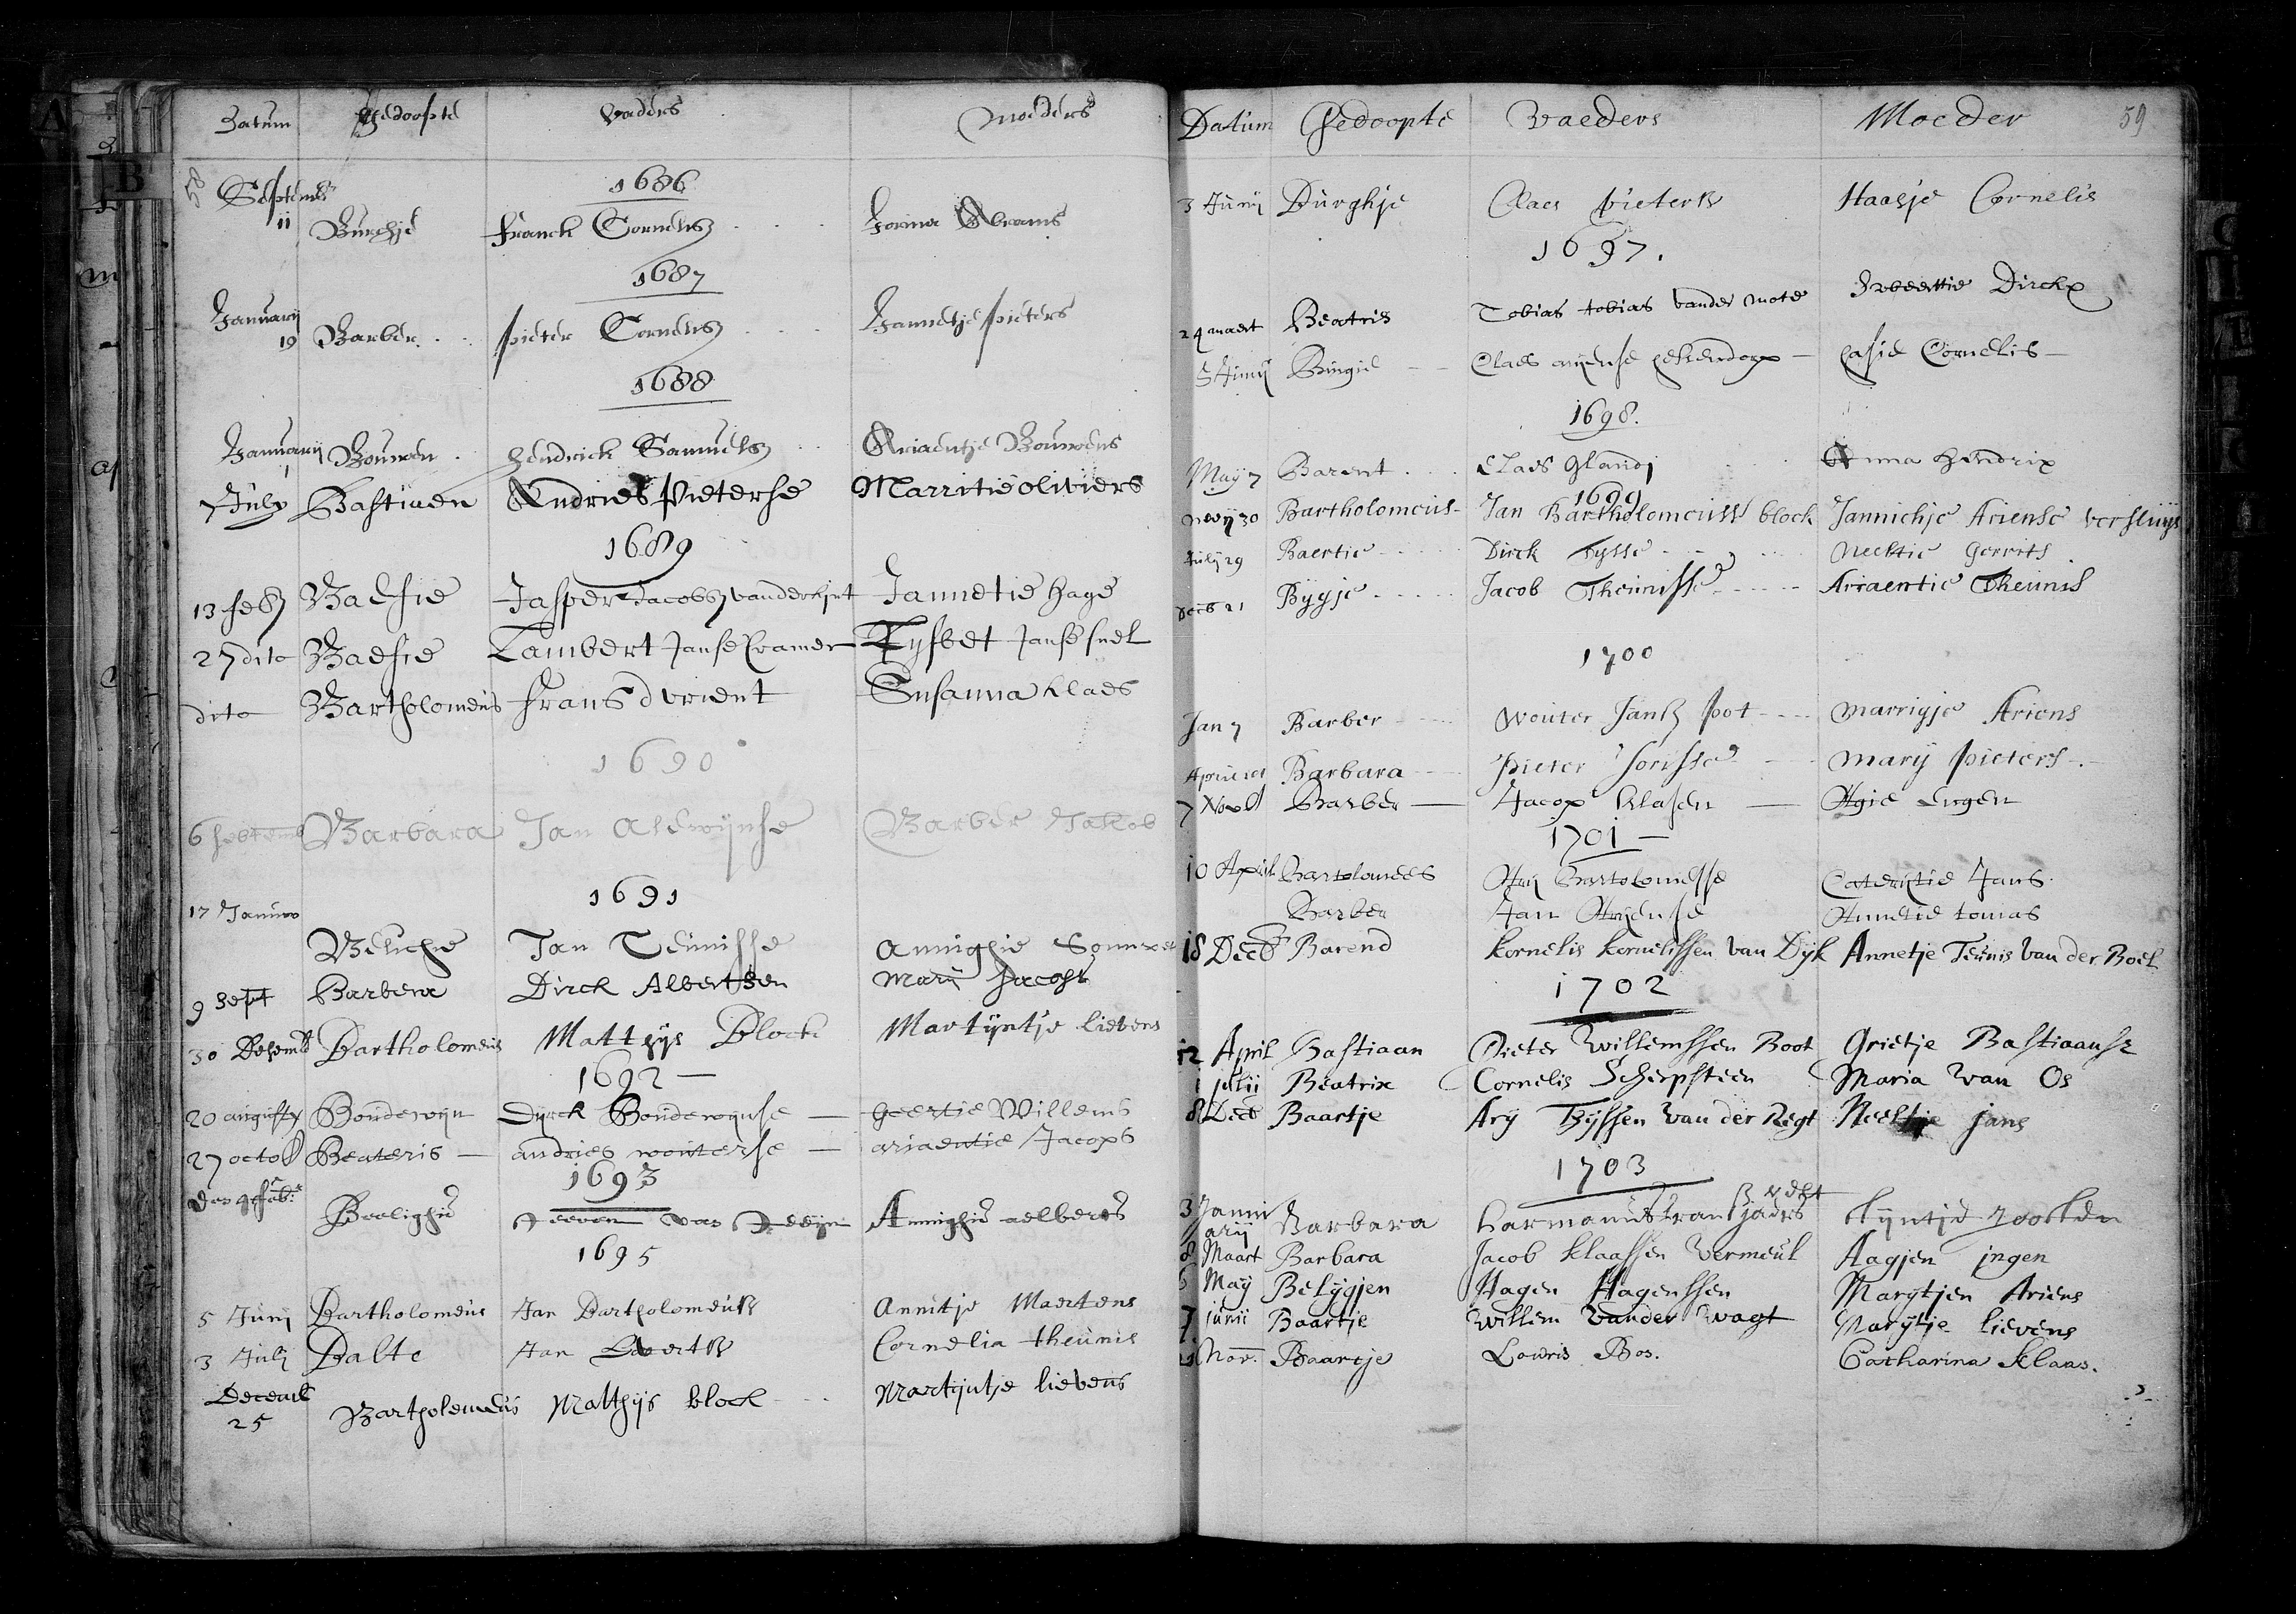 Datum Gedoopte vaders moeders
58
Septemb
1686
11 Burchje franck Cornelisz Jorina Abrams
1687
January
19 Barber pieter Cornelisz Jannetje pieters
1688
January Bouwen hendrick Samuelsz Ariaentje Bouwens
7 July Bastiaen Andries Pieterse Marritie oliviers
1689
13 feb Baefie Jasper Jacobsz vander lijnt Jannetie hage
27 dito Baefie Lambert Janse Cramer Lysbet Janse snel
dito Bartholomeus frans d vrient Susanna klaes
1690
6 septemb Barbara Jan Alewynse Barber Jakob
1691
17 Januw
Beliche Jan Teunisse Anninghie
9 Sept Barbera Dirck Albertsen Marij Jacobs
30 Desemb Bartholomeus Matthys Block Martijntje lievens
1692
20 augusty Boudewyn Dyrck Boudewynse geertie Willems
27 octob Beateris andries wouterse ariaentie Jacops
1693
den 9 feb: Beelighie van Anninghie aelberts
1695
5 Junij Bartholomeus Jan Bartholomeusz Annitje Maertens
3 Julij Balte Jan Evertsz Cornelia theunis
Decemb
25 Bartholemeus Matthijs block Martijntje lievens
Datum Gedoopte Vaeders Moeder 59
3 Junij Burghje Claes Pietersz Haasje Cornelis
1697.
24 maert Beatris Tobias tobias vander mote Dirckx
5 Junij Bingie Claes arijense Cornelis
1698.
May 7 Barent Claes Anna Hendrix
1699
30 Bartholomeus Jan Bartholomeusz block Jannichje Ariense versluys
July 29 Baertie Dirck Tysse Neeltie Gerrits
Decb 21 Bygje Jacob Theunisse Ariaentie Theunis
1700
Jan 7 Barber Wouter Jansz pot Marrigje Ariens
April Barbara Pieter Jorisse Marij pieters
7 Novb Barber Jacop klasen Agie engen
1701
10 April Bartolomees Arij Bartolomesse Caterijtie Jans
Barber Jan Arijense Annetie tomas
18 Decb Barend Kornelis Kornelissen van Dyk Annetje Teunis van der Boel
1702
12 April Bastiaan Pieter Willemssen Boot Grietje Bastiaanse
1 julii Beatrix Cornelis Scherpsteen Maria van Os
8 Decb Baartje Ary Thyssen van der Regt Neeltje jans
1703
3 Januarij Barbara harmanus Lijntje
8 Maart Barbara Jacob klaassen Vermeul Aagjen jngen
6 Maij Belijgjen Hagen Hagenssen Margtjen Ariens
7 junii Baartje Willem vander Wagt Marijtje lievens
Nov. Baartje Louris Bos. Catharina klaas.